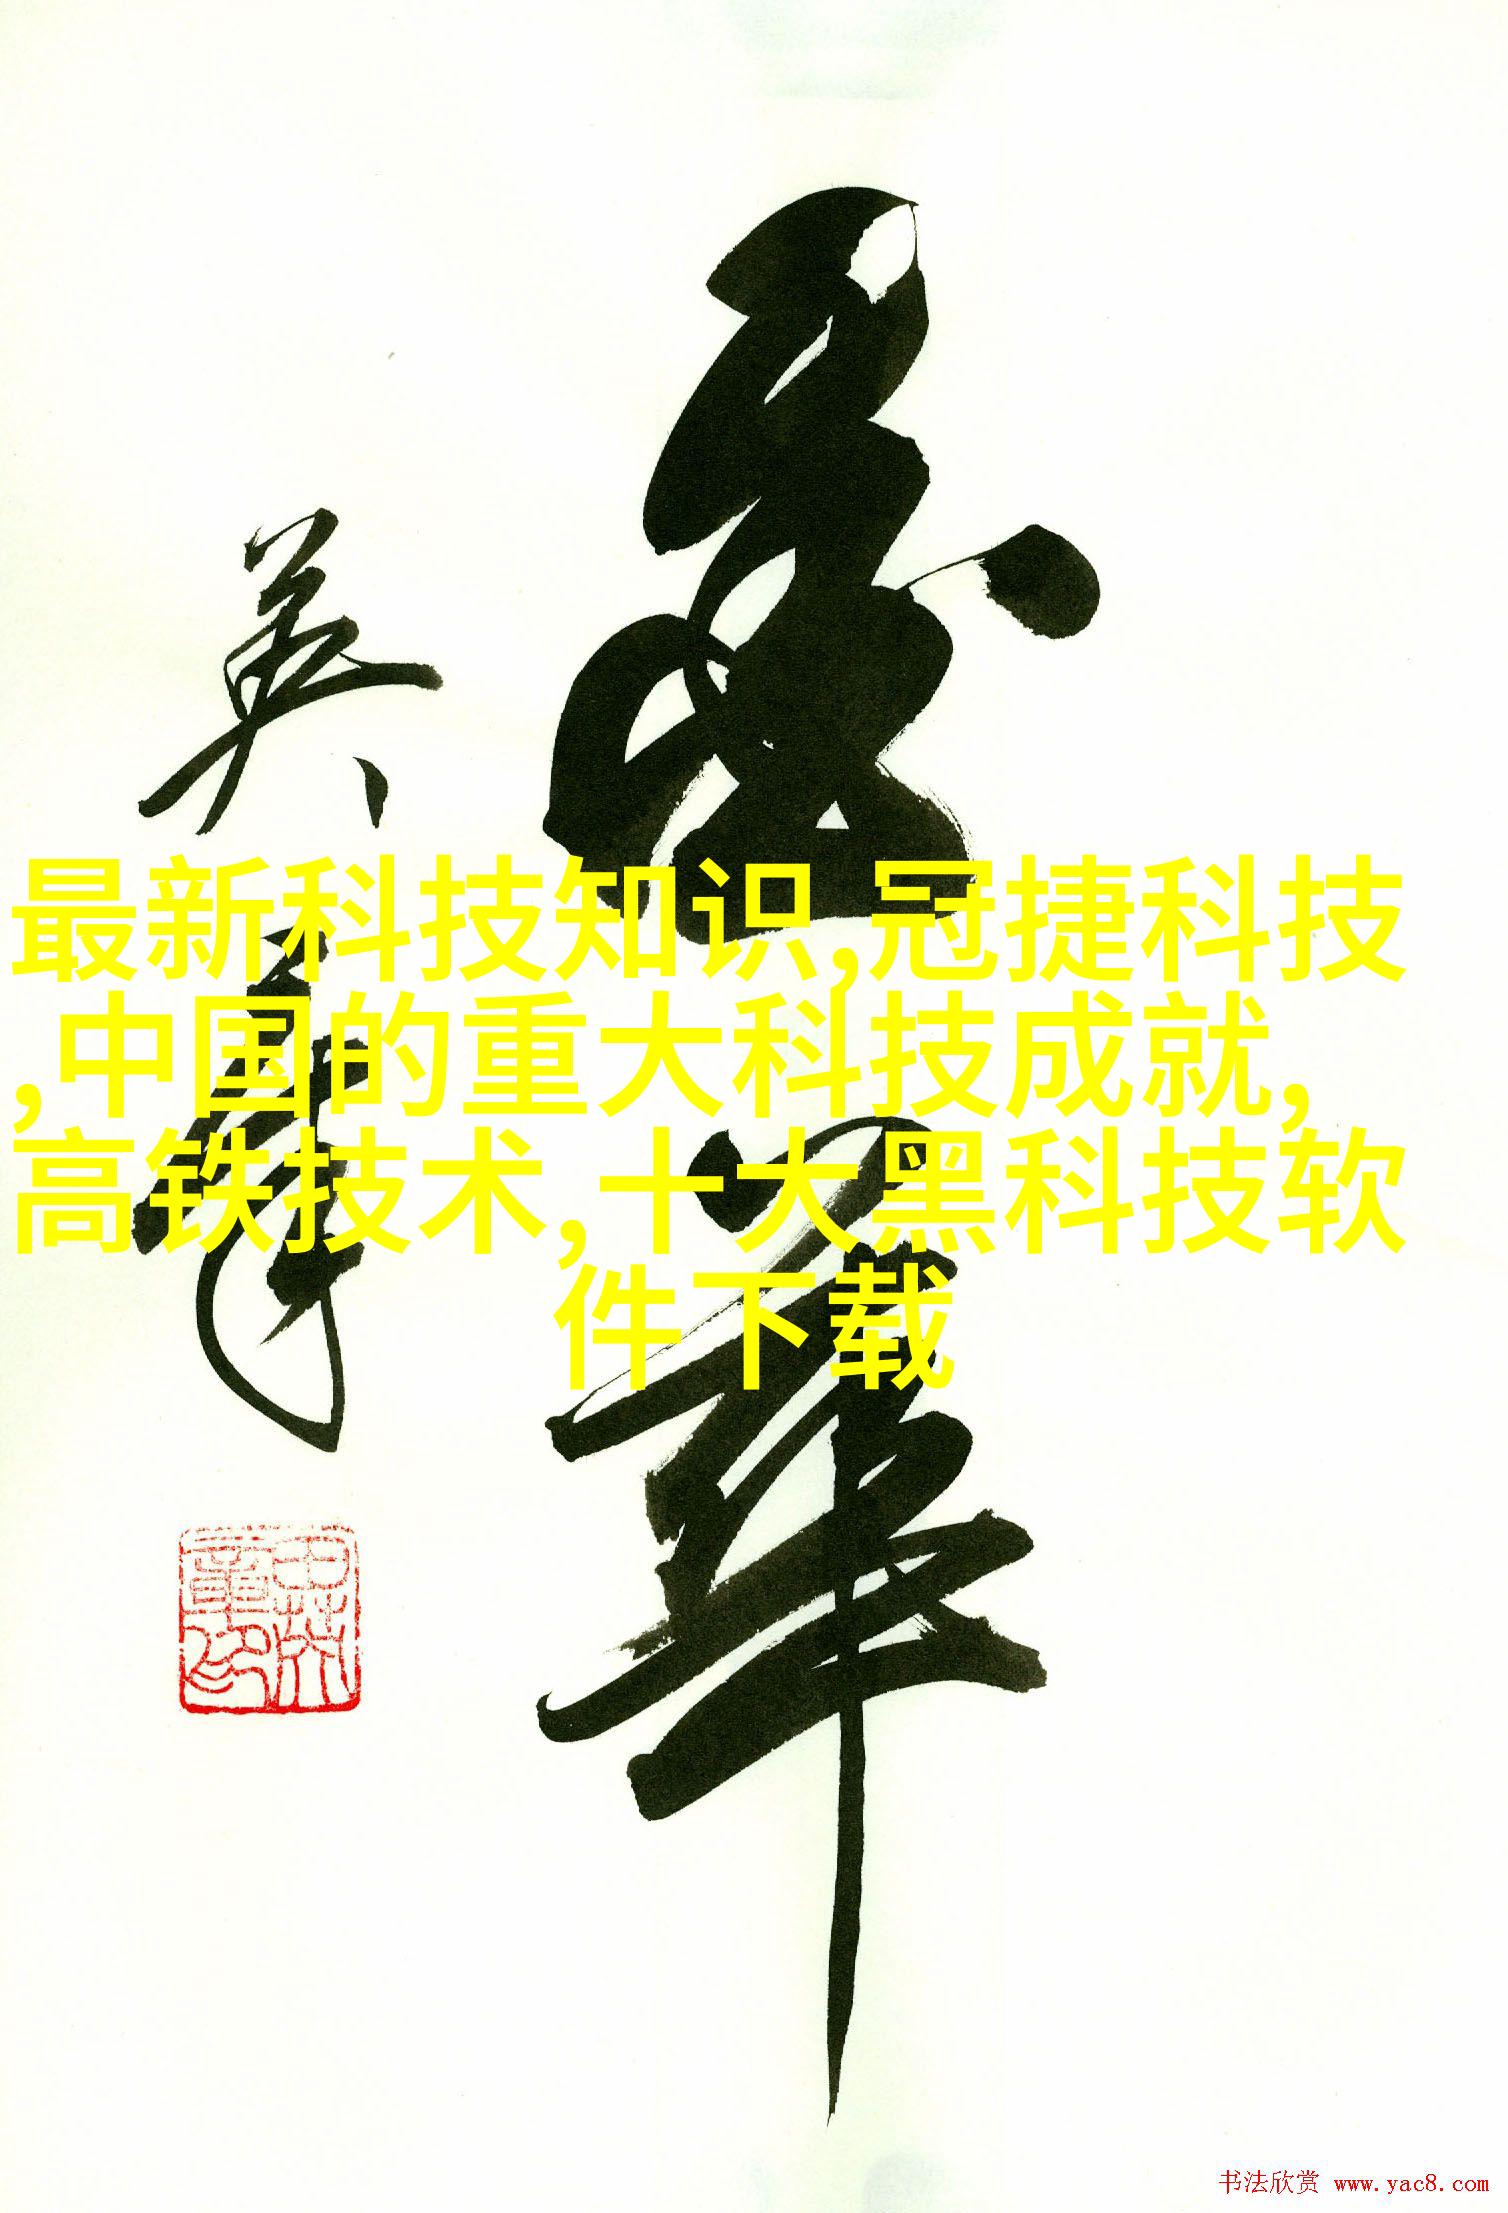 最新科技知识,冠捷科技
,中国的重大科技成就,
高铁技术,十大黑科技软
件下载
英
书法欣赏 www.yac8.com